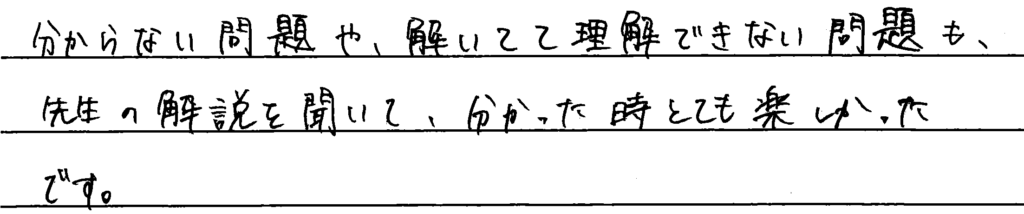 分からない問題や、解いてて理解できない問題も、
先生の解説を聞いて、分かった時とても楽しかった
です。